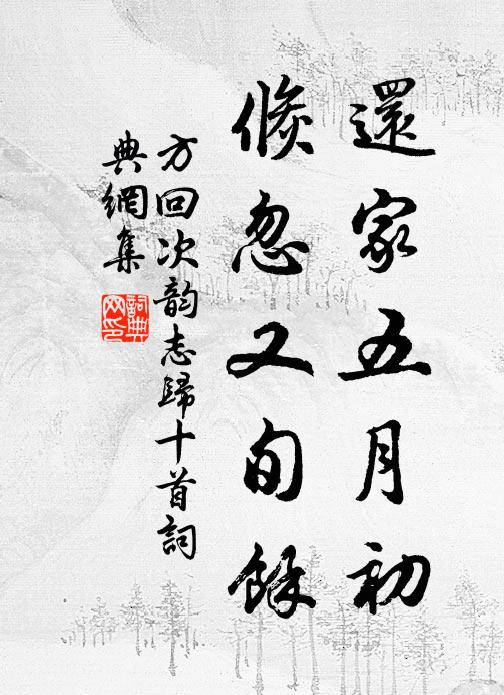 還家五月初
倏忽又旬餘
方回次韵志歸十首詞
典網集
詞典
网印